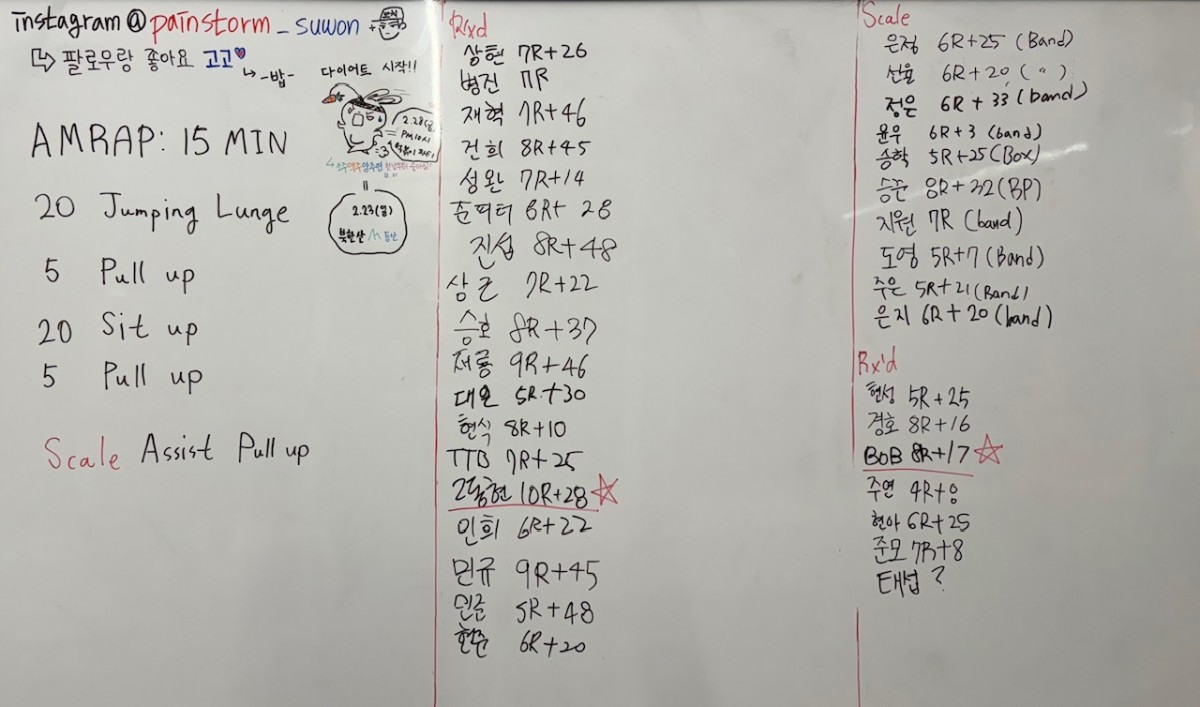 instagram@painstorm_suwon
팔로우랑 좋아요 고고
-밥-
다이어트 시작!!
2.28(금)
PM10시
2.23(일)
북한산 등산
AMRAP: 15 MIN
20 Jumping Lunge
5 Pull up
20 Sit up
5 Pull up
Scale Assist Pull up
Rxd
상현 7R+26
병진 7R
재혁 7R+46
건희 8R+45
성완 7R+14
준피터 8R+28
진섭 8R+48
상근 7R+22
승호 8R+37
재룡 9R+46
대온 5R+30
현식 8R+10
TTB 7R+25
고동현 10R+28
인희 6R+22
민규 9R+45
민준 5R+48
현준 6R+20
Scale
은정 6R+25 (Band)
선율 6R+20 ( " )
정은 6R+33 (band)
윤우 6R+3 (band)
승학 5R+25(Box)
승준 8R+32(BP)
지원 7R (band)
도영 5R+7 (Band)
주은 5R+21(Band)
은지 6R+20 (band)
Rx'd
현성 5R+25
경호 8R+16
BOB 8R+17
주연 4R+8
현아 6R+25
준모 7R+8
태섭 ?